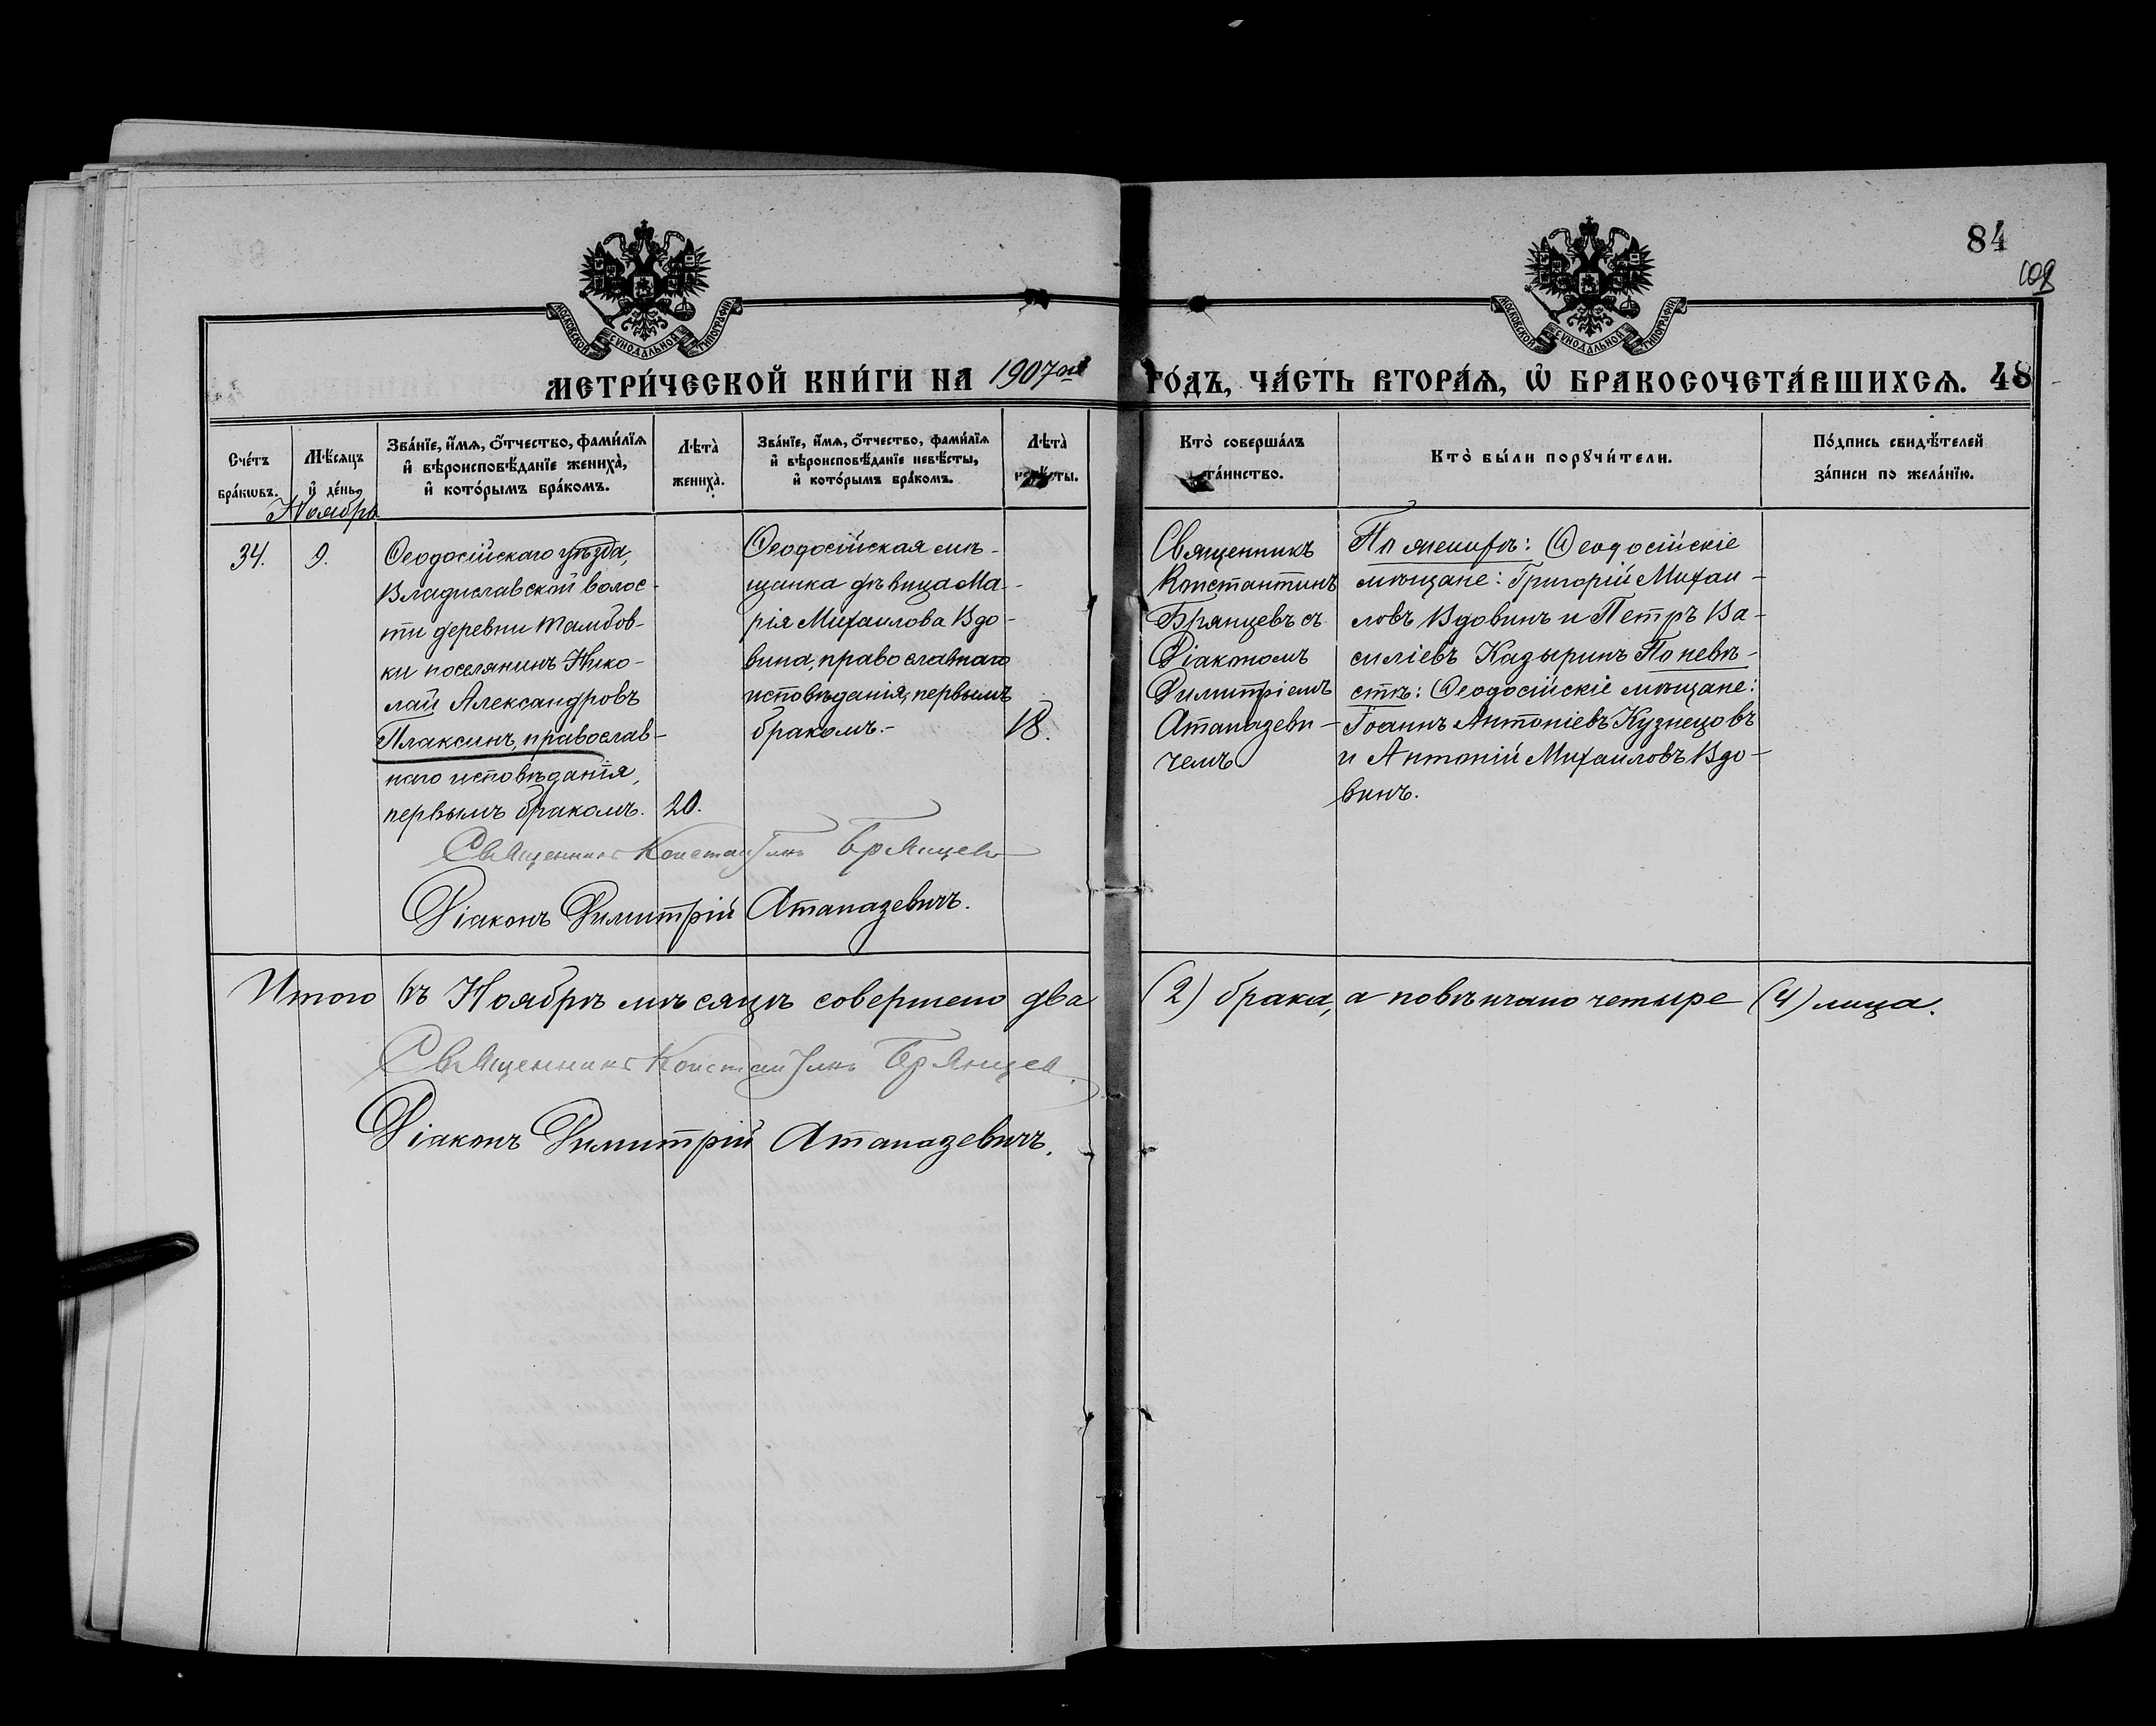 84
109
МОСКОВСКОЙ СѴНОДАЛЬНОЙ ТИПОГРАФИИ
МОСКОВСКОЙ СѴНОДАЛЬНОЙ ТИПОГРАФИИ
МЕТРИ́ЧЕСКОЙ КНИ́ГИ НА 1907ой ГО́ДЪ, ЧА́СТЬ ВТОРА́Ѧ, Ѽ БРАКОСОЧЕТА́ВШИХСѦ. 48
Сче́тъ бра́кѡвъ.
Мѣ́сяцъ и҆ де́нь.
Зва́нїе, и҆́мѧ, ѻ҆́тчество, фами́лїѧ и҆ вѣроисповѣ́данїе жениха̀, и҆ кото́рымъ бра́комъ.
Лѣта̀ жениха̀.
Зва́нїе, и҆́мѧ, ѻ҆́тчество, фами́лїѧ и҆ вѣроисповѣ́данїе невѣ́сты, и҆ кото́рымъ бра́комъ.
Лѣта̀ невѣ́сты.
Кто̀ соверша́лъ та́инство.
Кто̀ бы́ли порꙋчи́тели.
По́дпись свидѣ́телей за́писи по жела́нїю.
Ноябрь
34.
9.
Ѳеодосійскаго уѣзда,
Владиславской волос-
ти деревни Тамбов-
ки поселянинъ Нико-
лай Александровъ
Плаксинъ, православ-
наго исповѣданія,
первымъ бракомъ.
20.
Ѳеодосійская мѣ-
щанка дѣвица Ма-
рія Михаилова Вдо-
вина, православнаго
исповѣданія, первымъ
бракомъ.-
18.
Священникъ
Константинъ
Брянцевъ съ
Діакономъ
Димитріемъ
Атаназеви-
чемъ
По женихѣ: Ѳеодосійскіе
мѣщане: Григорій Михаи-
ловъ Вдовинъ и Петръ Ва-
силіевъ Кадыринъ По невѣ-
стѣ: Ѳеодосійскіе мѣщане:
Іоаннъ Антоніевъ Кузнецовъ
и Антоній Михаиловъ Вдо-
винъ.
Священникъ Константинъ Брянцевъ
Діаконъ Димитрій Атаназевичъ.
Итого въ Ноябрѣ мѣсяцѣ совершено два (2) брака, а повѣнчано четыре (4) лица.
Священникъ Константинъ Брянцев
Діаконъ Димитрій Атаназевичъ.